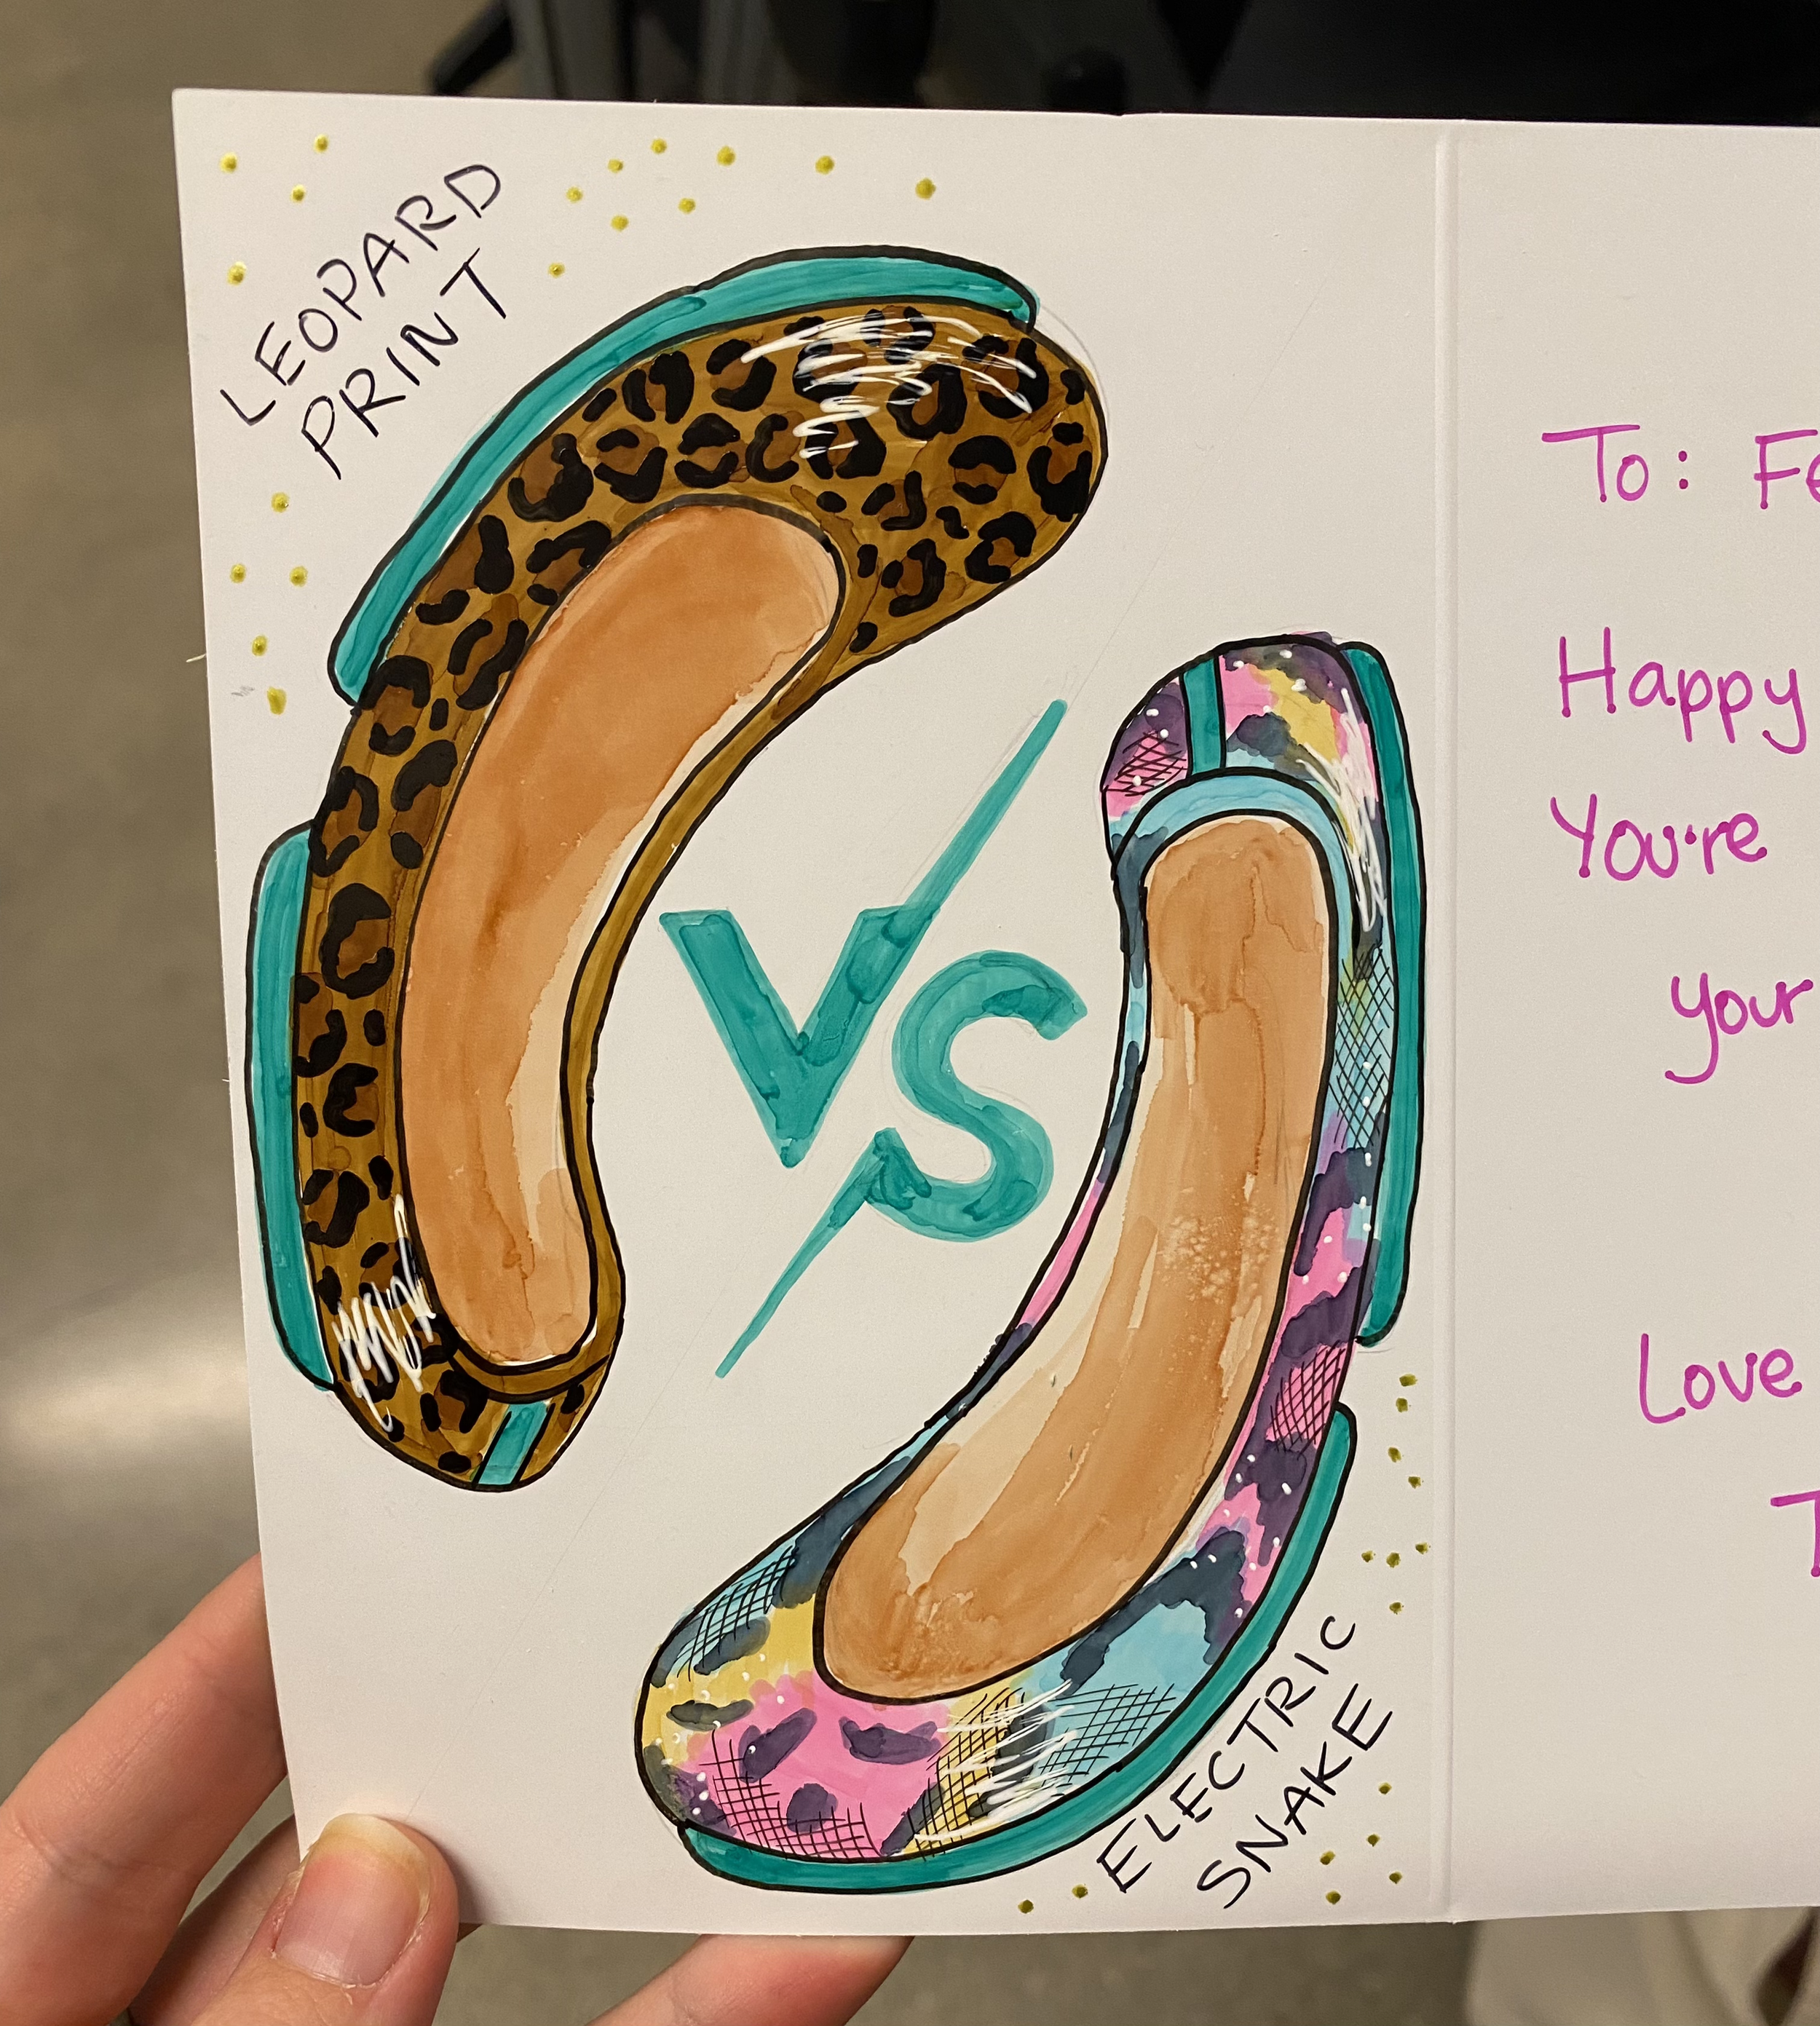 LEOPARD
PRINT
VS
ELECTRIC
SNAKE
To:
Happy
You're
your
Love